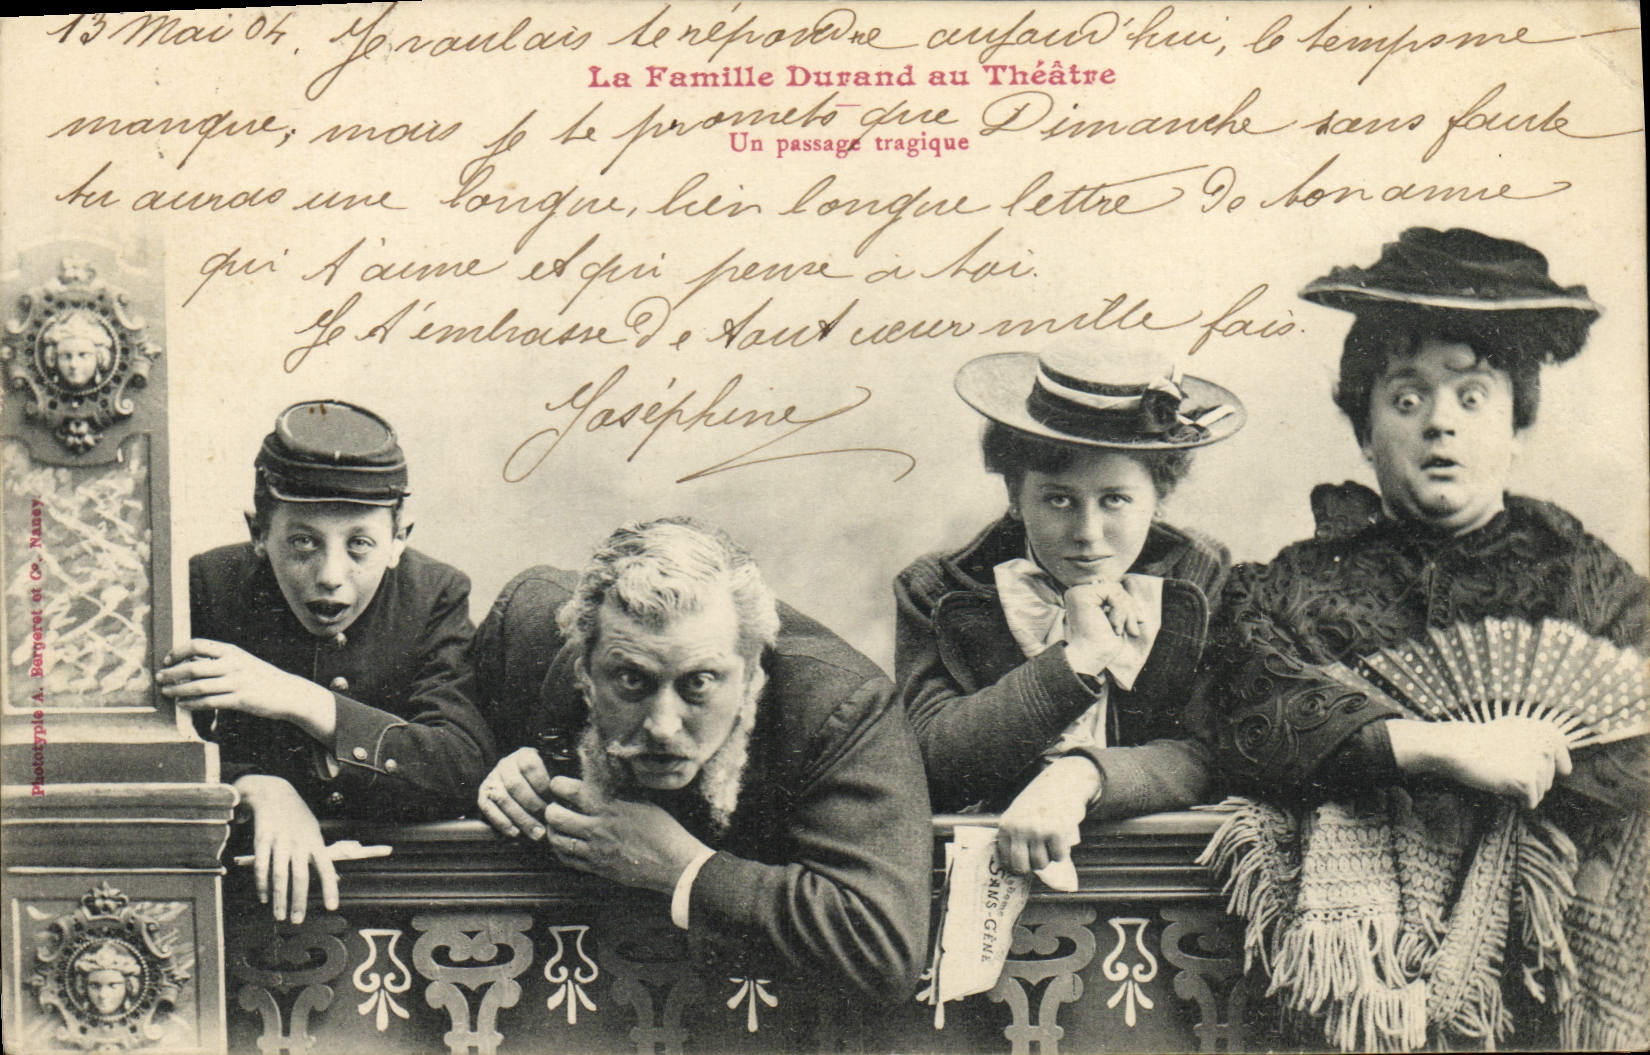 13 Mai 04. Je voulais te répondre aujourd'hui, le temps me
La Famille Durand au Théâtre
manque; mais je te promets que Dimanche sans faute
Un passage tragique
tu auras une longue, bien longue lettre de ton amie
qui t'aime et qui pense à toi.
Je t'embrasse de tout cœur mille fois.
Joséphine
Phototypie A. Bergeret et Cie, Nancy.
SANS-GÊNE